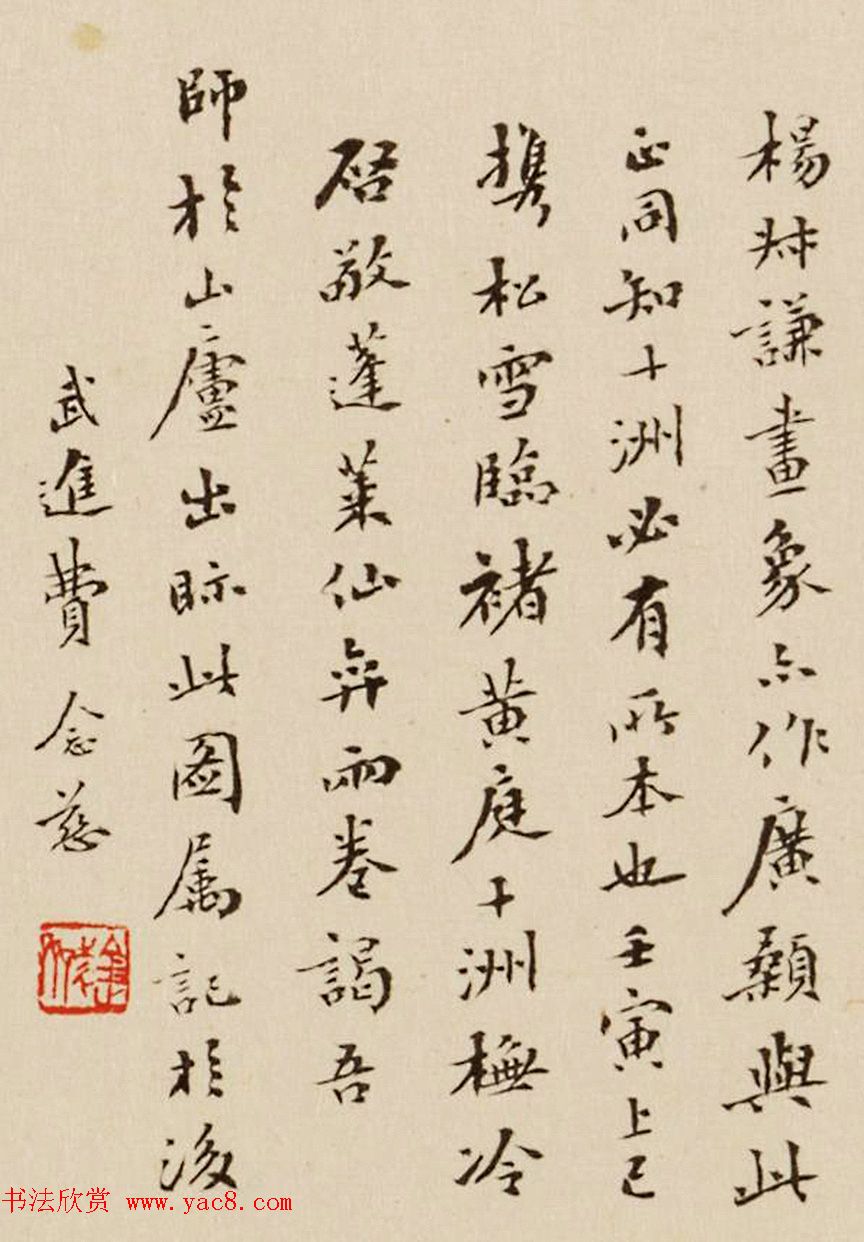 楊叔謙畫象亦作廣顙與此
正同知十洲必有所本也壬寅上巳
攜松雪臨褚黄庭十洲橅冷
啓敬蓬萊仙弈兩卷謁吾
師於山廬出眎此圖属記於後
武進費念慈
书法欣赏 www.yac8.com